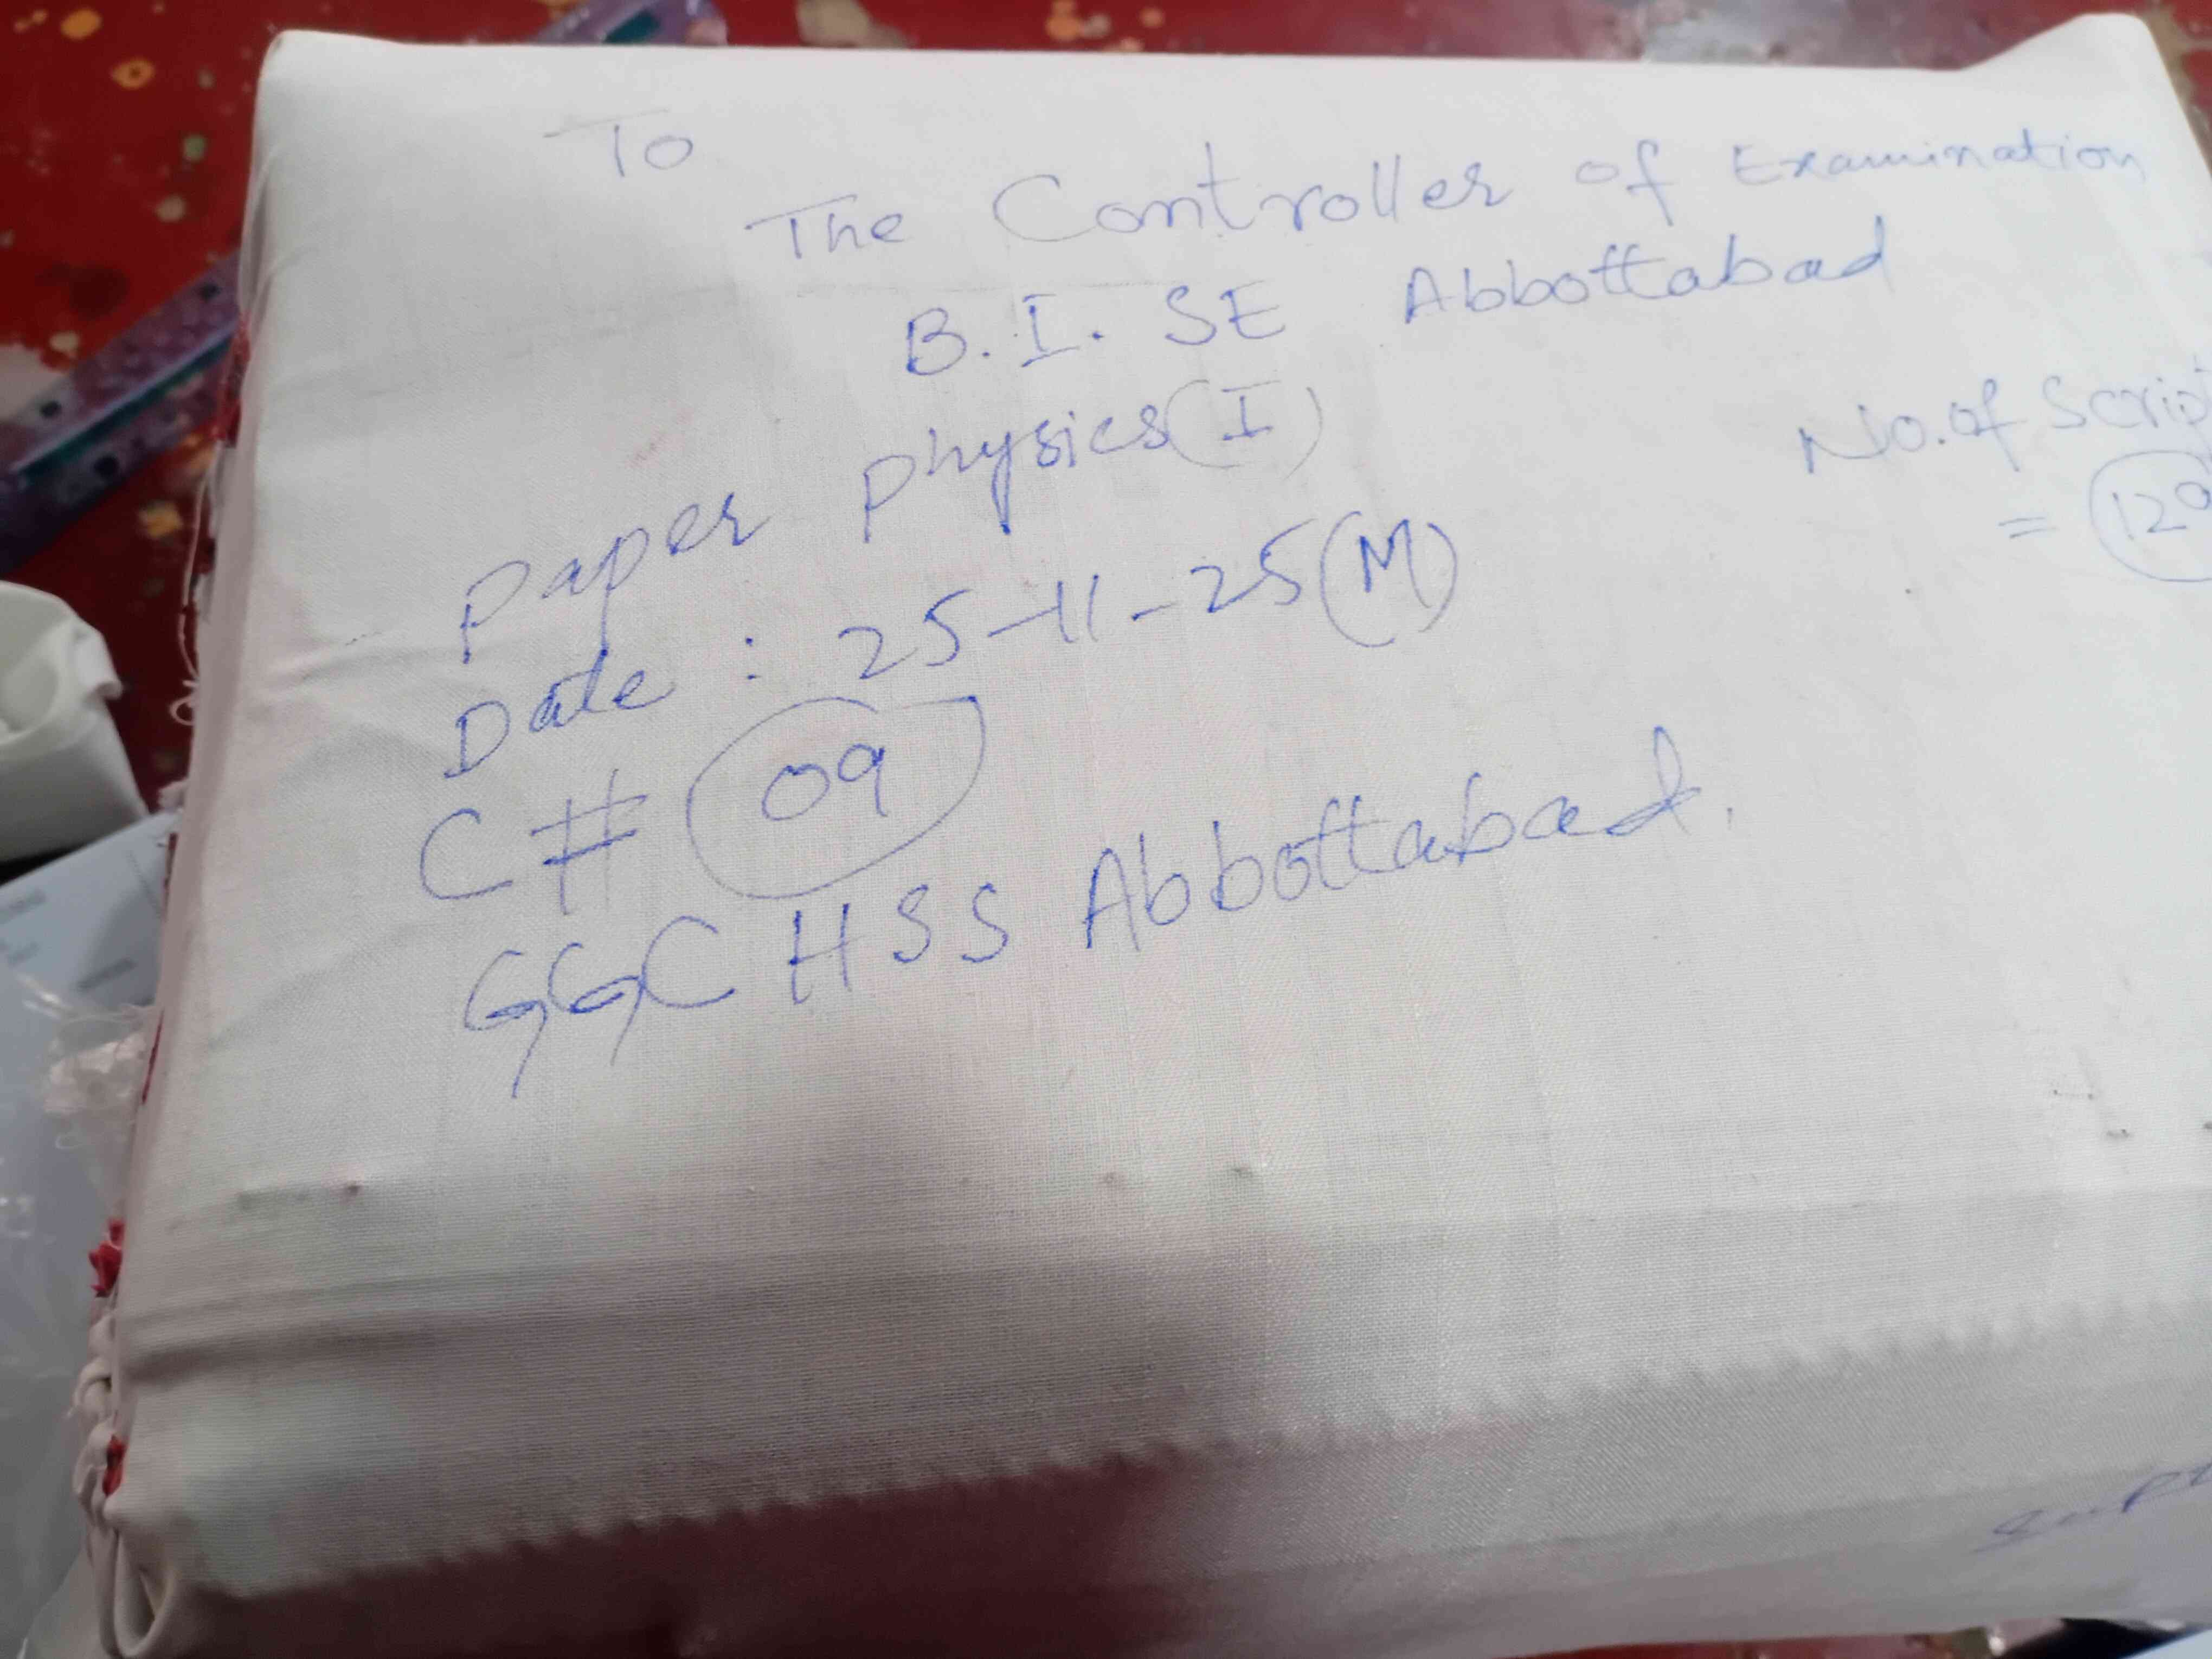 To
The Controller of Examination
B.I.SE Abbottabad
Paper Physics (I)
No. of Script
= 120
Date : 25-11-25 (M)
C # 09
GGC HSS Abbottabad.
Supt